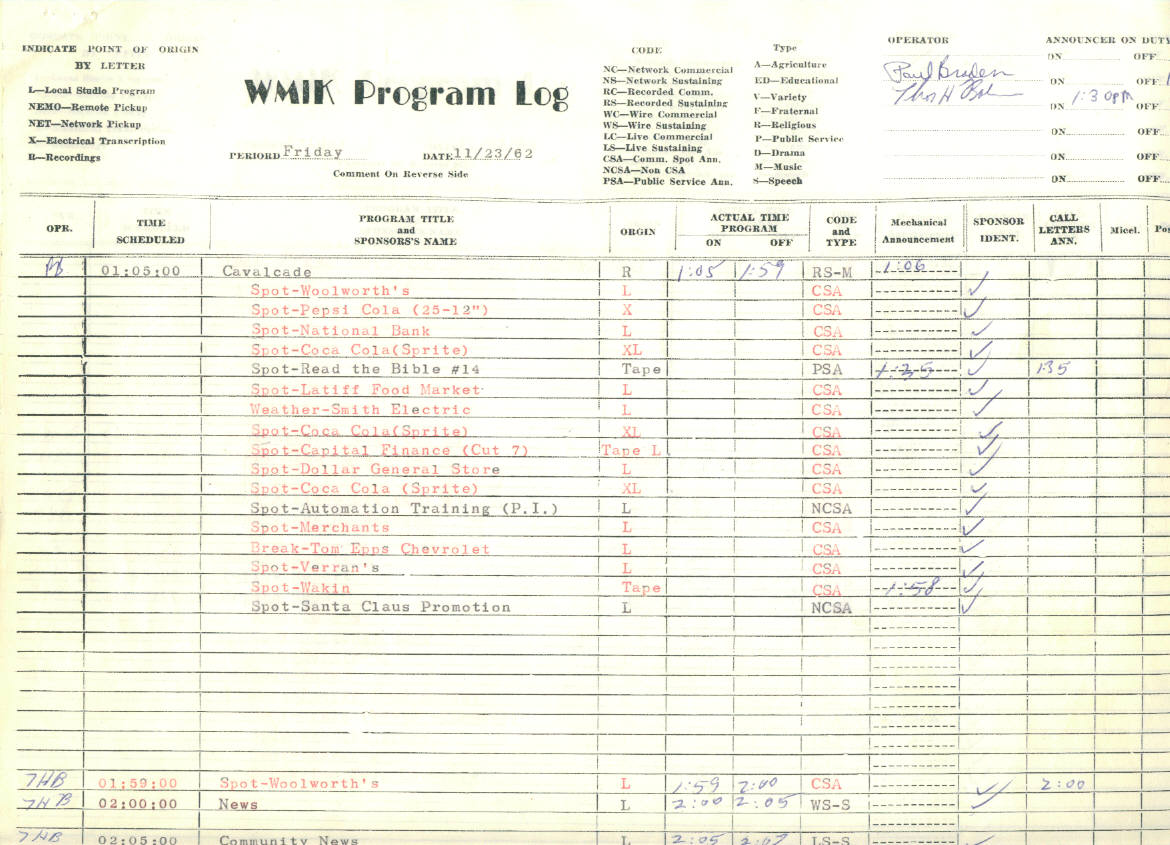 INDICATE POINT OF ORIGIN
BY LETTER
L—Local Studio Program
NEMO—Remote Pickup
NET—Network Pickup
X—Electrical Transcription
R—Recordings
WMIK Program Log
PERIORD Friday DATE 11/23/62
Comment On Reverse Side
CODE
NC—Network Commercial
NS—Network Sustaining
RC—Recorded Comm.
RS—Recorded Sustaining
WC—Wire Commercial
WS—Wire Sustaining
LC—Live Commercial
LS—Live Sustaining
CSA—Comm. Spot Ann.
NCSA—Non CSA
PSA—Public Service Ann.
Type
A—Agriculture
ED—Educational
V—Variety
F—Fraternal
R—Religious
P—Public Service
D—Drama
M—Music
S—Speech
OPERATOR ANNOUNCER ON DUTY
ON OFF
Paul Braden ON OFF
Thos H ON 1:30pm OFF
ON OFF
ON OFF
ON OFF
OPR. TIME SCHEDULED PROGRAM TITLE and SPONSORS'S NAME ORGIN ACTUAL TIME PROGRAM ON OFF CODE and TYPE Mechanical Announcement SPONSOR IDENT. CALL LETTERS ANN. Micel.
01:05:00 Cavalcade R 1:05 1:59 RS-M 1:06
Spot-Woolworth's L CSA
Spot-Pepsi Cola (25-12") X CSA
Spot-National Bank L CSA
Spot-Coca Cola(Sprite) XL CSA
Spot-Read the Bible #14 Tape PSA 1:35 135
Spot-Latiff Food Market L CSA
Weather-Smith Electric L CSA
Spot-Coca Cola(Sprite) XL CSA
Spot-Capital Finance (Cut 7) Tape L CSA
Spot-Dollar General Store L CSA
Spot-Coca Cola (Sprite) XL CSA
Spot-Automation Training (P.I.) L NCSA
Spot-Merchants L CSA
Break-Tom Epps Chevrolet L CSA
Spot-Verran's L CSA
Spot-Wakin Tape CSA 1:58
Spot-Santa Claus Promotion L NCSA
THB 01:59:00 Spot-Woolworth's L 1:59 2:00 CSA 2:00
THB 02:00:00 News L 2:00 2:05 WS-S
THB 02:05:00 Community News L 2:05 2:07 LS-S